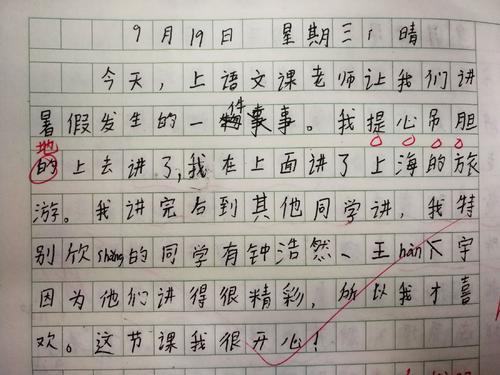 9月19日 星期三 晴
今天，上语文课老师让我们讲
暑假发生的一件事。我提心吊胆
地
的上去讲了，我在上面讲了上海的旅
游。我讲完后到其他同学讲，我特
别欣shǎng的同学有钟浩然、王hàn宇
因为他们讲得很精彩，所以我才喜
欢。这节课我很开心！